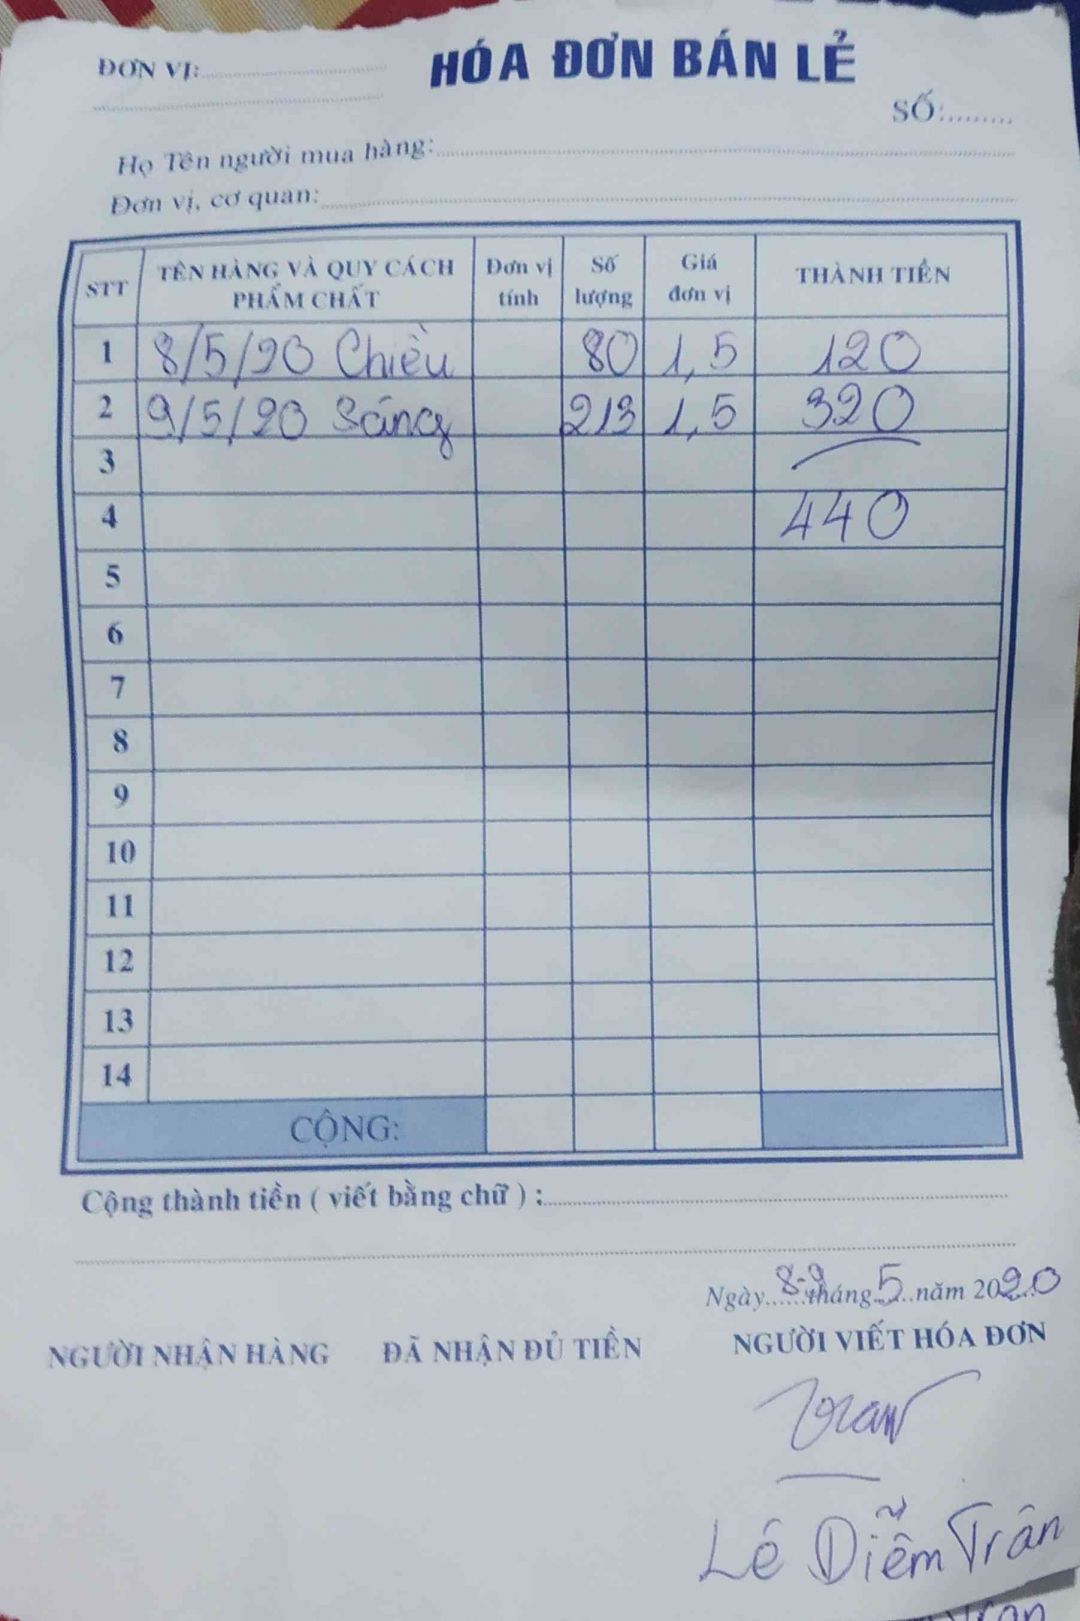 ĐƠN VỊ:
HÓA ĐƠN BÁN LẺ
SỐ:
Họ Tên người mua hàng:
Đơn vị, cơ quan:
STT TÊN HÀNG VÀ QUY CÁCH PHẨM CHẤT Đơn vị tính Số lượng Giá đơn vị THÀNH TIỀN
1 8/5/20 Chiều 80 1,5 120
2 9/5/20 Sáng 213 1,5 320
3
4 440
5
6
7
8
9
10
11
12
13
14
CỘNG:
Cộng thành tiền ( viết bằng chữ ) :
Ngày 8-9 tháng 5 năm 2020
NGƯỜI NHẬN HÀNG ĐÃ NHẬN ĐỦ TIỀN NGƯỜI VIẾT HÓA ĐƠN
Lê Diễm Trân